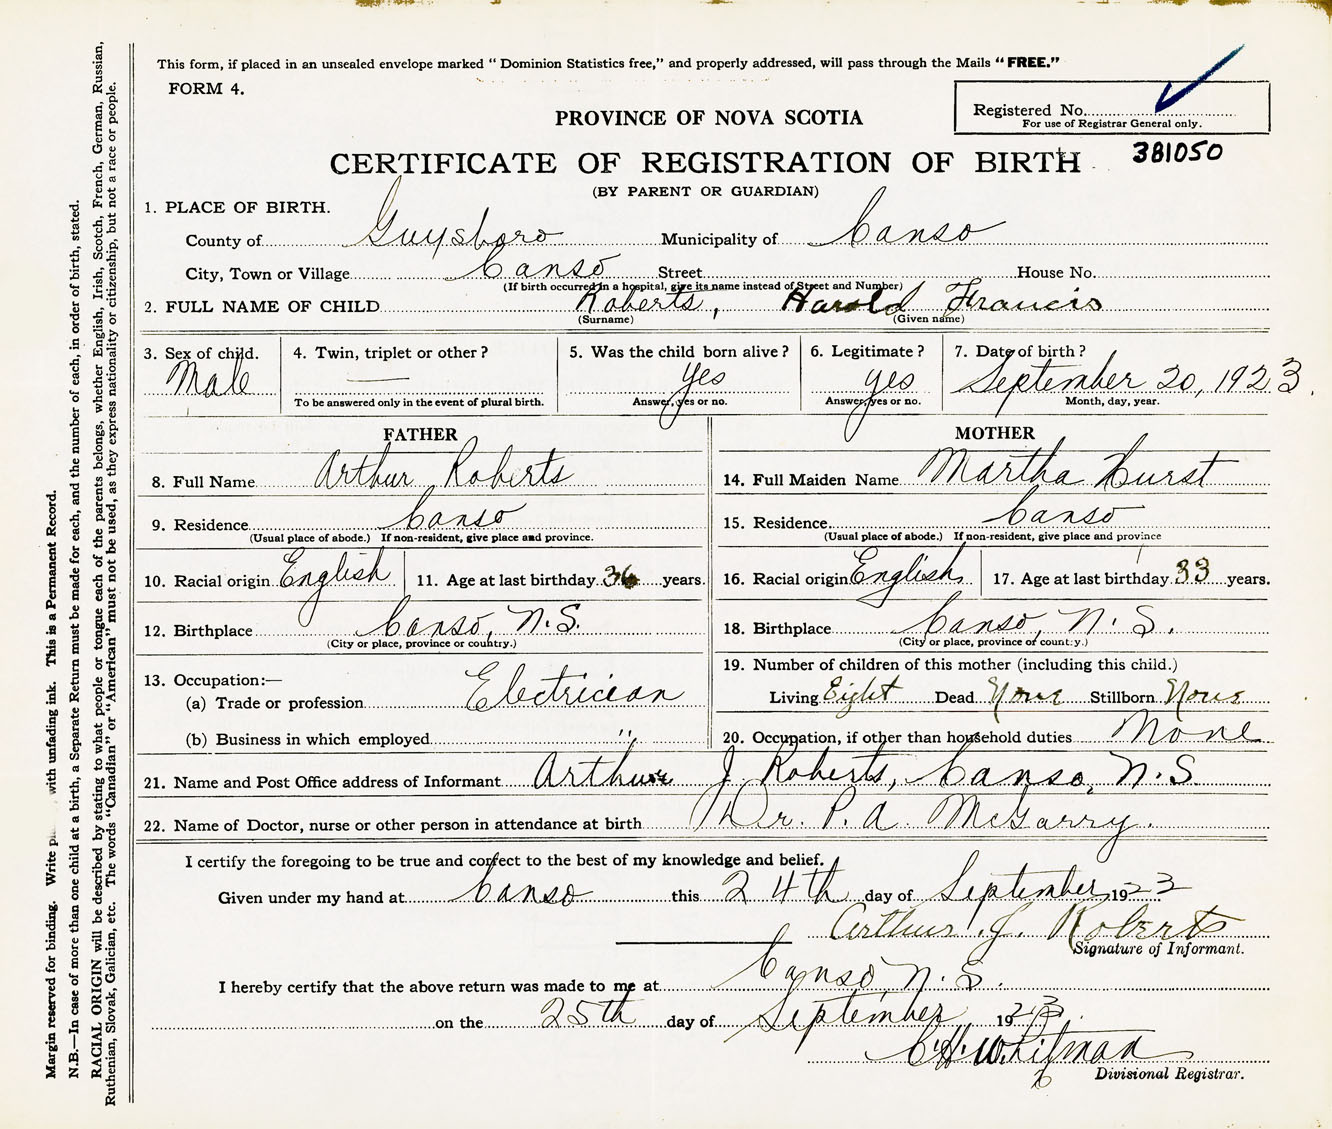 This form, if placed in an unsealed envelope marked “Dominion Statistics free,” and properly addressed, will pass through the Mails “FREE.”
FORM 4.
Registered No.
For use of Registrar General only.
PROVINCE OF NOVA SCOTIA
381050
CERTIFICATE OF REGISTRATION OF BIRTH
(BY PARENT OR GUARDIAN)
1. PLACE OF BIRTH.
County of Guysboro Municipality of Canso
City, Town or Village Canso Street House No.
(If birth occurred in a hospital, give its name instead of Street and Number)
2. FULL NAME OF CHILD Roberts, Harold Francis
(Surname) (Given name)
3. Sex of child. 4. Twin, triplet or other? 5. Was the child born alive? 6. Legitimate? 7. Date of birth?
Male — yes yes September 20, 1923.
To be answered only in the event of plural birth. Answer, yes or no. Answer, yes or no. Month, day, year.
FATHER
8. Full Name Arthur Roberts
9. Residence Canso
(Usual place of abode.) If non-resident, give place and province.
10. Racial origin English 11. Age at last birthday 36 years.
12. Birthplace Canso, N.S.
(City or place, province or country.)
13. Occupation:—
(a) Trade or profession Electrician
(b) Business in which employed "
MOTHER
14. Full Maiden Name Martha Hurst
15. Residence Canso
(Usual place of abode.) If non-resident, give place and province
16. Racial origin English 17. Age at last birthday 33 years.
18. Birthplace Canso, N.S.
(City or place, province of country.)
19. Number of children of this mother (including this child.)
Living Eight Dead None Stillborn None
20. Occupation, if other than household duties None
21. Name and Post Office address of Informant Arthur J. Roberts, Canso, N.S.
22. Name of Doctor, nurse or other person in attendance at birth Dr. P. A. McGarry.
I certify the foregoing to be true and correct to the best of my knowledge and belief.
Given under my hand at Canso this 24th day of September, 1923
Arthur J. Roberts
Signature of Informant.
I hereby certify that the above return was made to me at Canso, N.S.
on the 25th day of September 1923.
C. H. Whitman
Divisional Registrar.
Margin reserved for binding. Write with unfading ink. This is a Permanent Record.
N.B.—In case of more than one child at a birth, a Separate Return must be made for each, and the number of each, in order of birth, stated.
RACIAL ORIGIN will be described by stating to what people or tongue each of the parents belongs, whether English, Irish, Scotch, French, German, Russian,
Ruthenian, Slovak, Galician, etc. The words “Canadian” or “American” must not be used, as they express nationality or citizenship, but not a race or people.